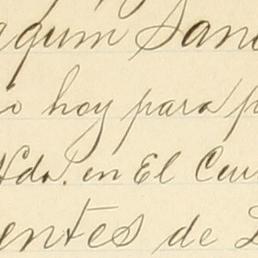 aquin San
io hoy para p
Hda. en El Cur
entes de L